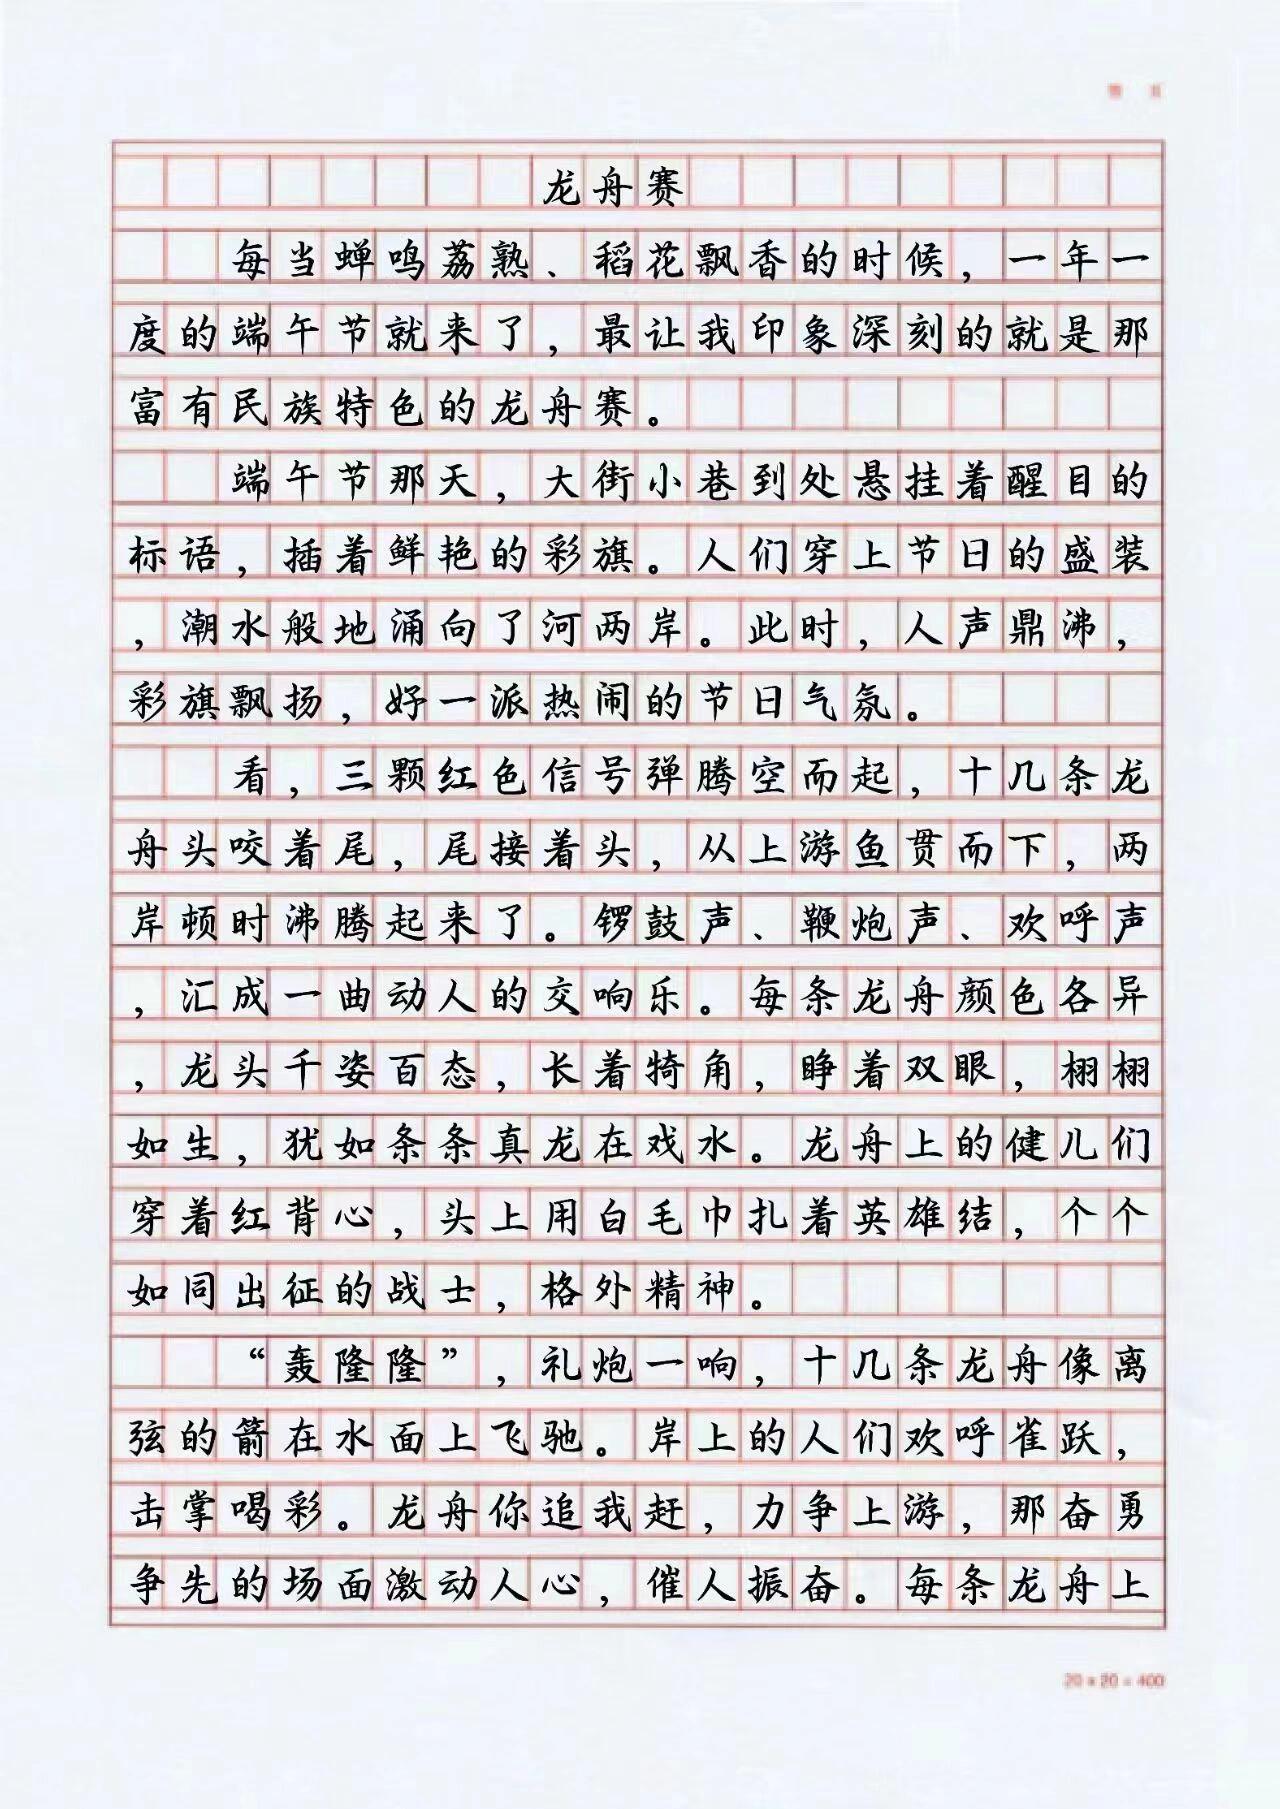 龙舟赛
每当蝉鸣荔熟、稻花飘香的时候，一年一
度的端午节就来了，最让我印象深刻的就是那
富有民族特色的龙舟赛。
端午节那天，大街小巷到处悬挂着醒目的
标语，插着鲜艳的彩旗。人们穿上节日的盛装
，潮水般地涌向了河两岸。此时，人声鼎沸，
彩旗飘扬，好一派热闹的节日气氛。
看，三颗红色信号弹腾空而起，十几条龙
舟头咬着尾，尾接着头，从上游鱼贯而下，两
岸顿时沸腾起来了。锣鼓声、鞭炮声、欢呼声
，汇成一曲动人的交响乐。每条龙舟颜色各异
，龙头千姿百态，长着犄角，睁着双眼，栩栩
如生，犹如条条真龙在戏水。龙舟上的健儿们
穿着红背心，头上用白毛巾扎着英雄结，个个
如同出征的战士，格外精神。
“轰隆隆”，礼炮一响，十几条龙舟像离
弦的箭在水面上飞驰。岸上的人们欢呼雀跃，
击掌喝彩。龙舟你追我赶，力争上游，那奋勇
争先的场面激动人心，催人振奋。每条龙舟上
20×20=400